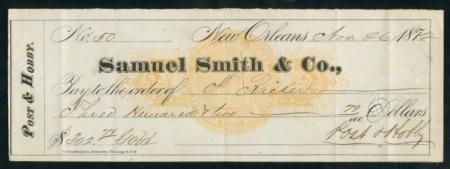 POST & HOBBY.
No. 50 New Orleans, Nov 26 187
Samuel Smith & Co.,
Pay to the order of
Three Hundred & two 72/100 Dollars
$302.72 Gold Post & Hobby